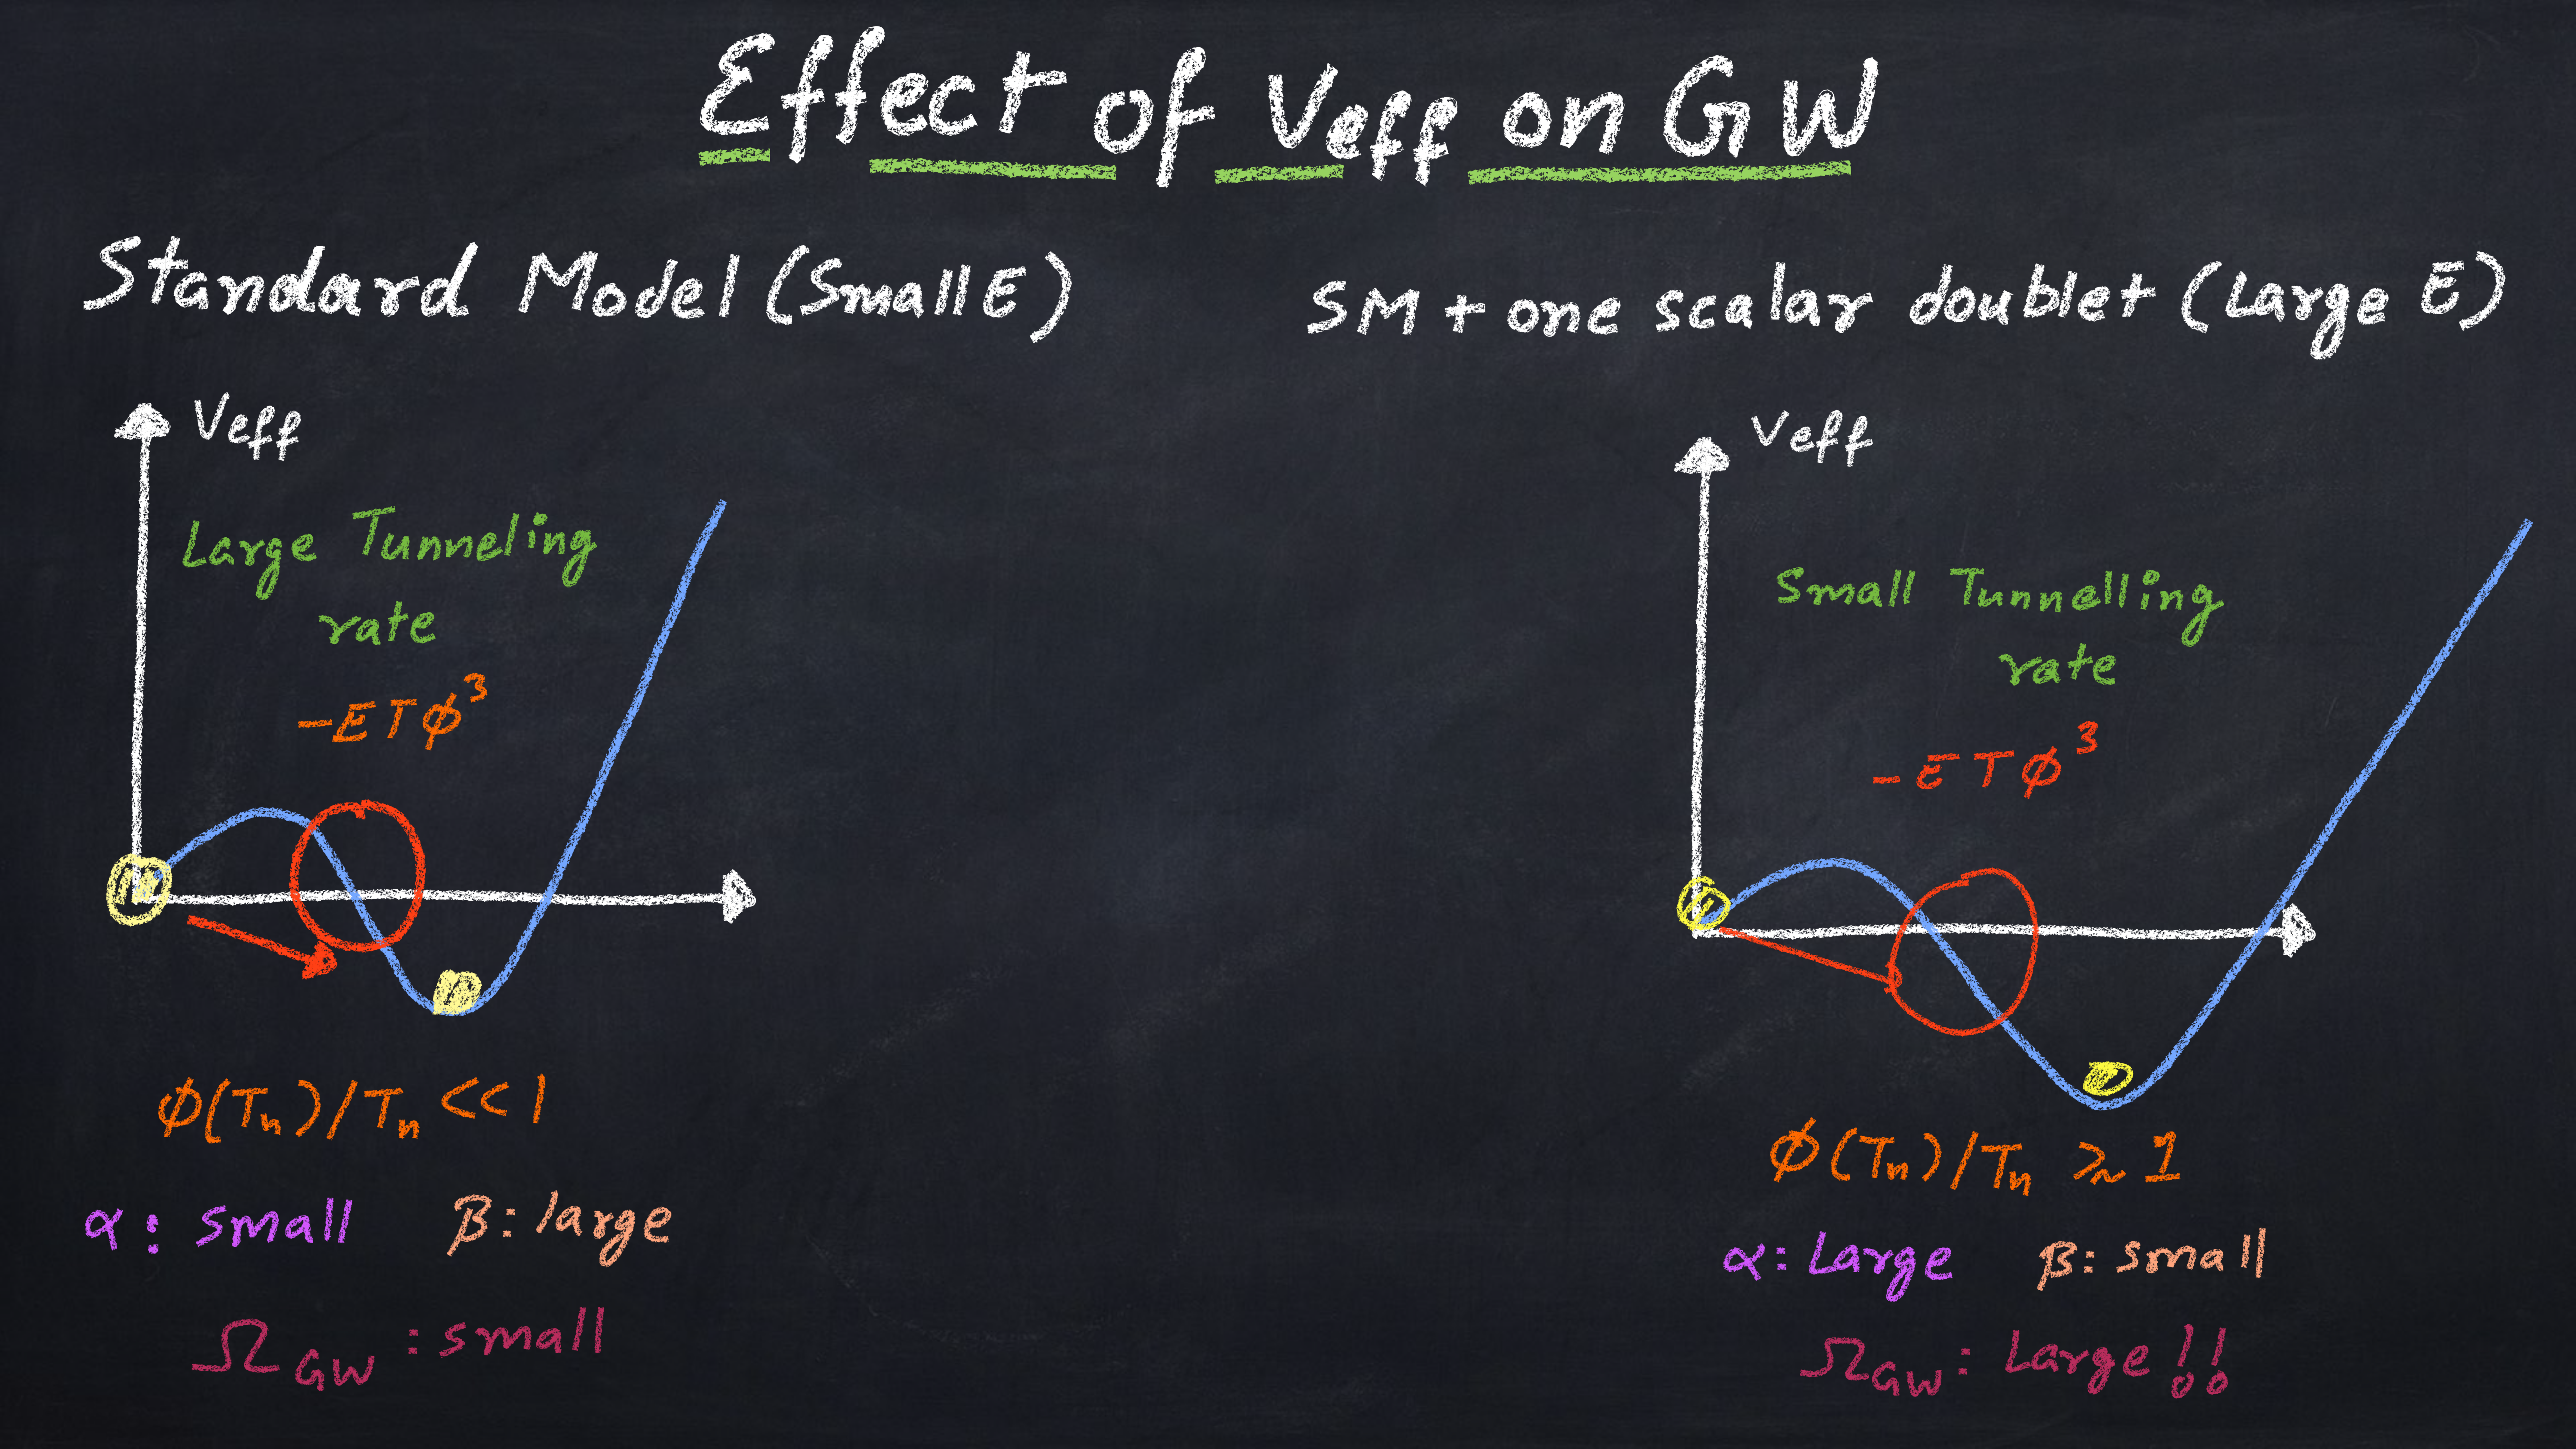 Effect of Veff on GW
Standard Model (Small E)
Veff
Large Tunneling
rate
-ETϕ³
ϕ(Tn)/Tn << 1
α: small β: large
Ω_GW : small
SM + one scalar doublet (Large E)
Veff
Small Tunnelling
rate
-ETϕ³
ϕ(Tn)/Tn ≳ 1
α: Large β: small
Ω_GW : Large!!